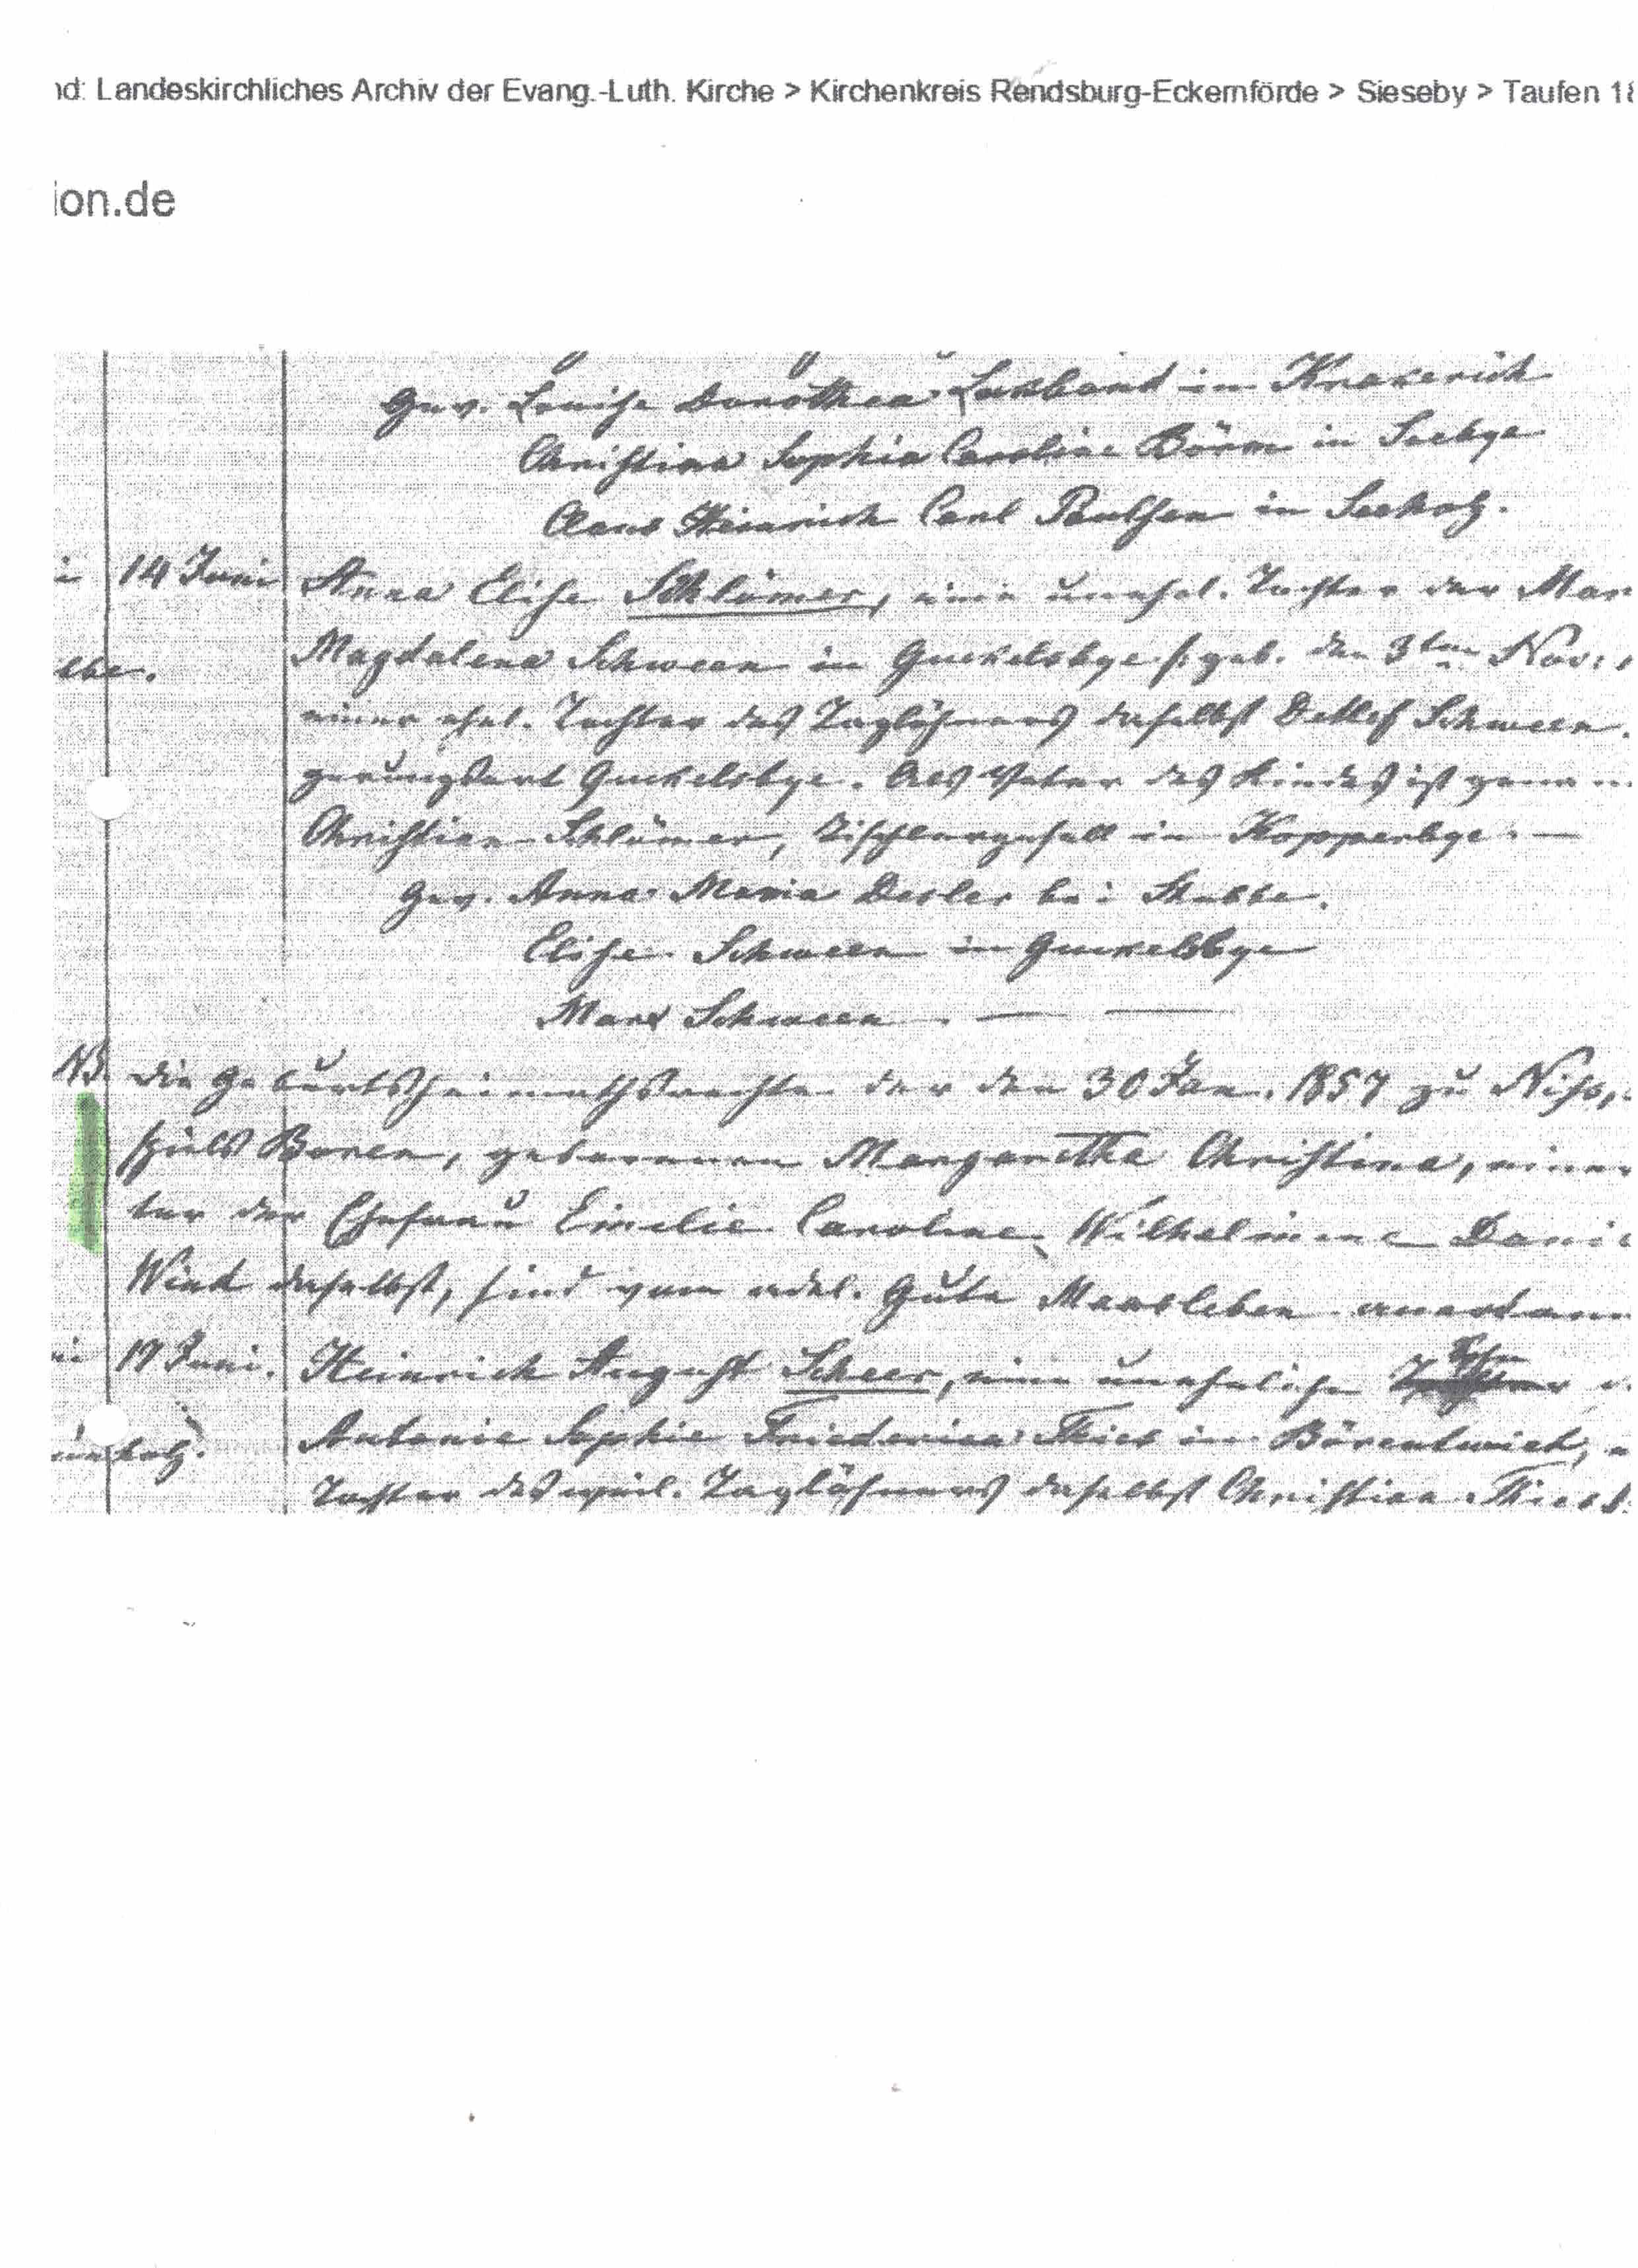 nd: Landeskirchliches Archiv der Evang.-Luth. Kirche > Kirchenkreis Rendsburg-Eckernförde > Sieseby > Taufen 18
ion.de
Gev. Louise Dorothea in
Christina Sophia Caroline Börm in Seebye
Claus Heinrich Carl Paulsen in Seeholz.
14 Juni Anna Elise Schlömer, eine unehel. Tochter der Mar
Magdalena Schween in Guckelsbye /: geb. den 3ten Nov.
einer ehel. Tochter des Taglöhners daselbst Detlef Schween.
Guckelsbye. Als Vater des Kindes ist
Christian Schlömer, Tischlergesell in Kopperbye. —
Gev. Anna Maria bei Stubbe.
Elise Schween in Guckelsbye
Marx Schween — —
NB. Die Geburtsheimathsrechte der den 30 Jan. 1857 zu
spiels Boren, geborenen Margaretha Christina, einer
ter der Ehefrau Emelie Caroline Wilhelmine
daselbst, sind vom adel. Gute Maasleben
17 Juni. Heinrich August Scheer, ein unehelicher Sohn
holz. Antonie Sophie Friederica Thies in Börentwiet,
Tochter des weil. Taglöhners daselbst Christian Thies